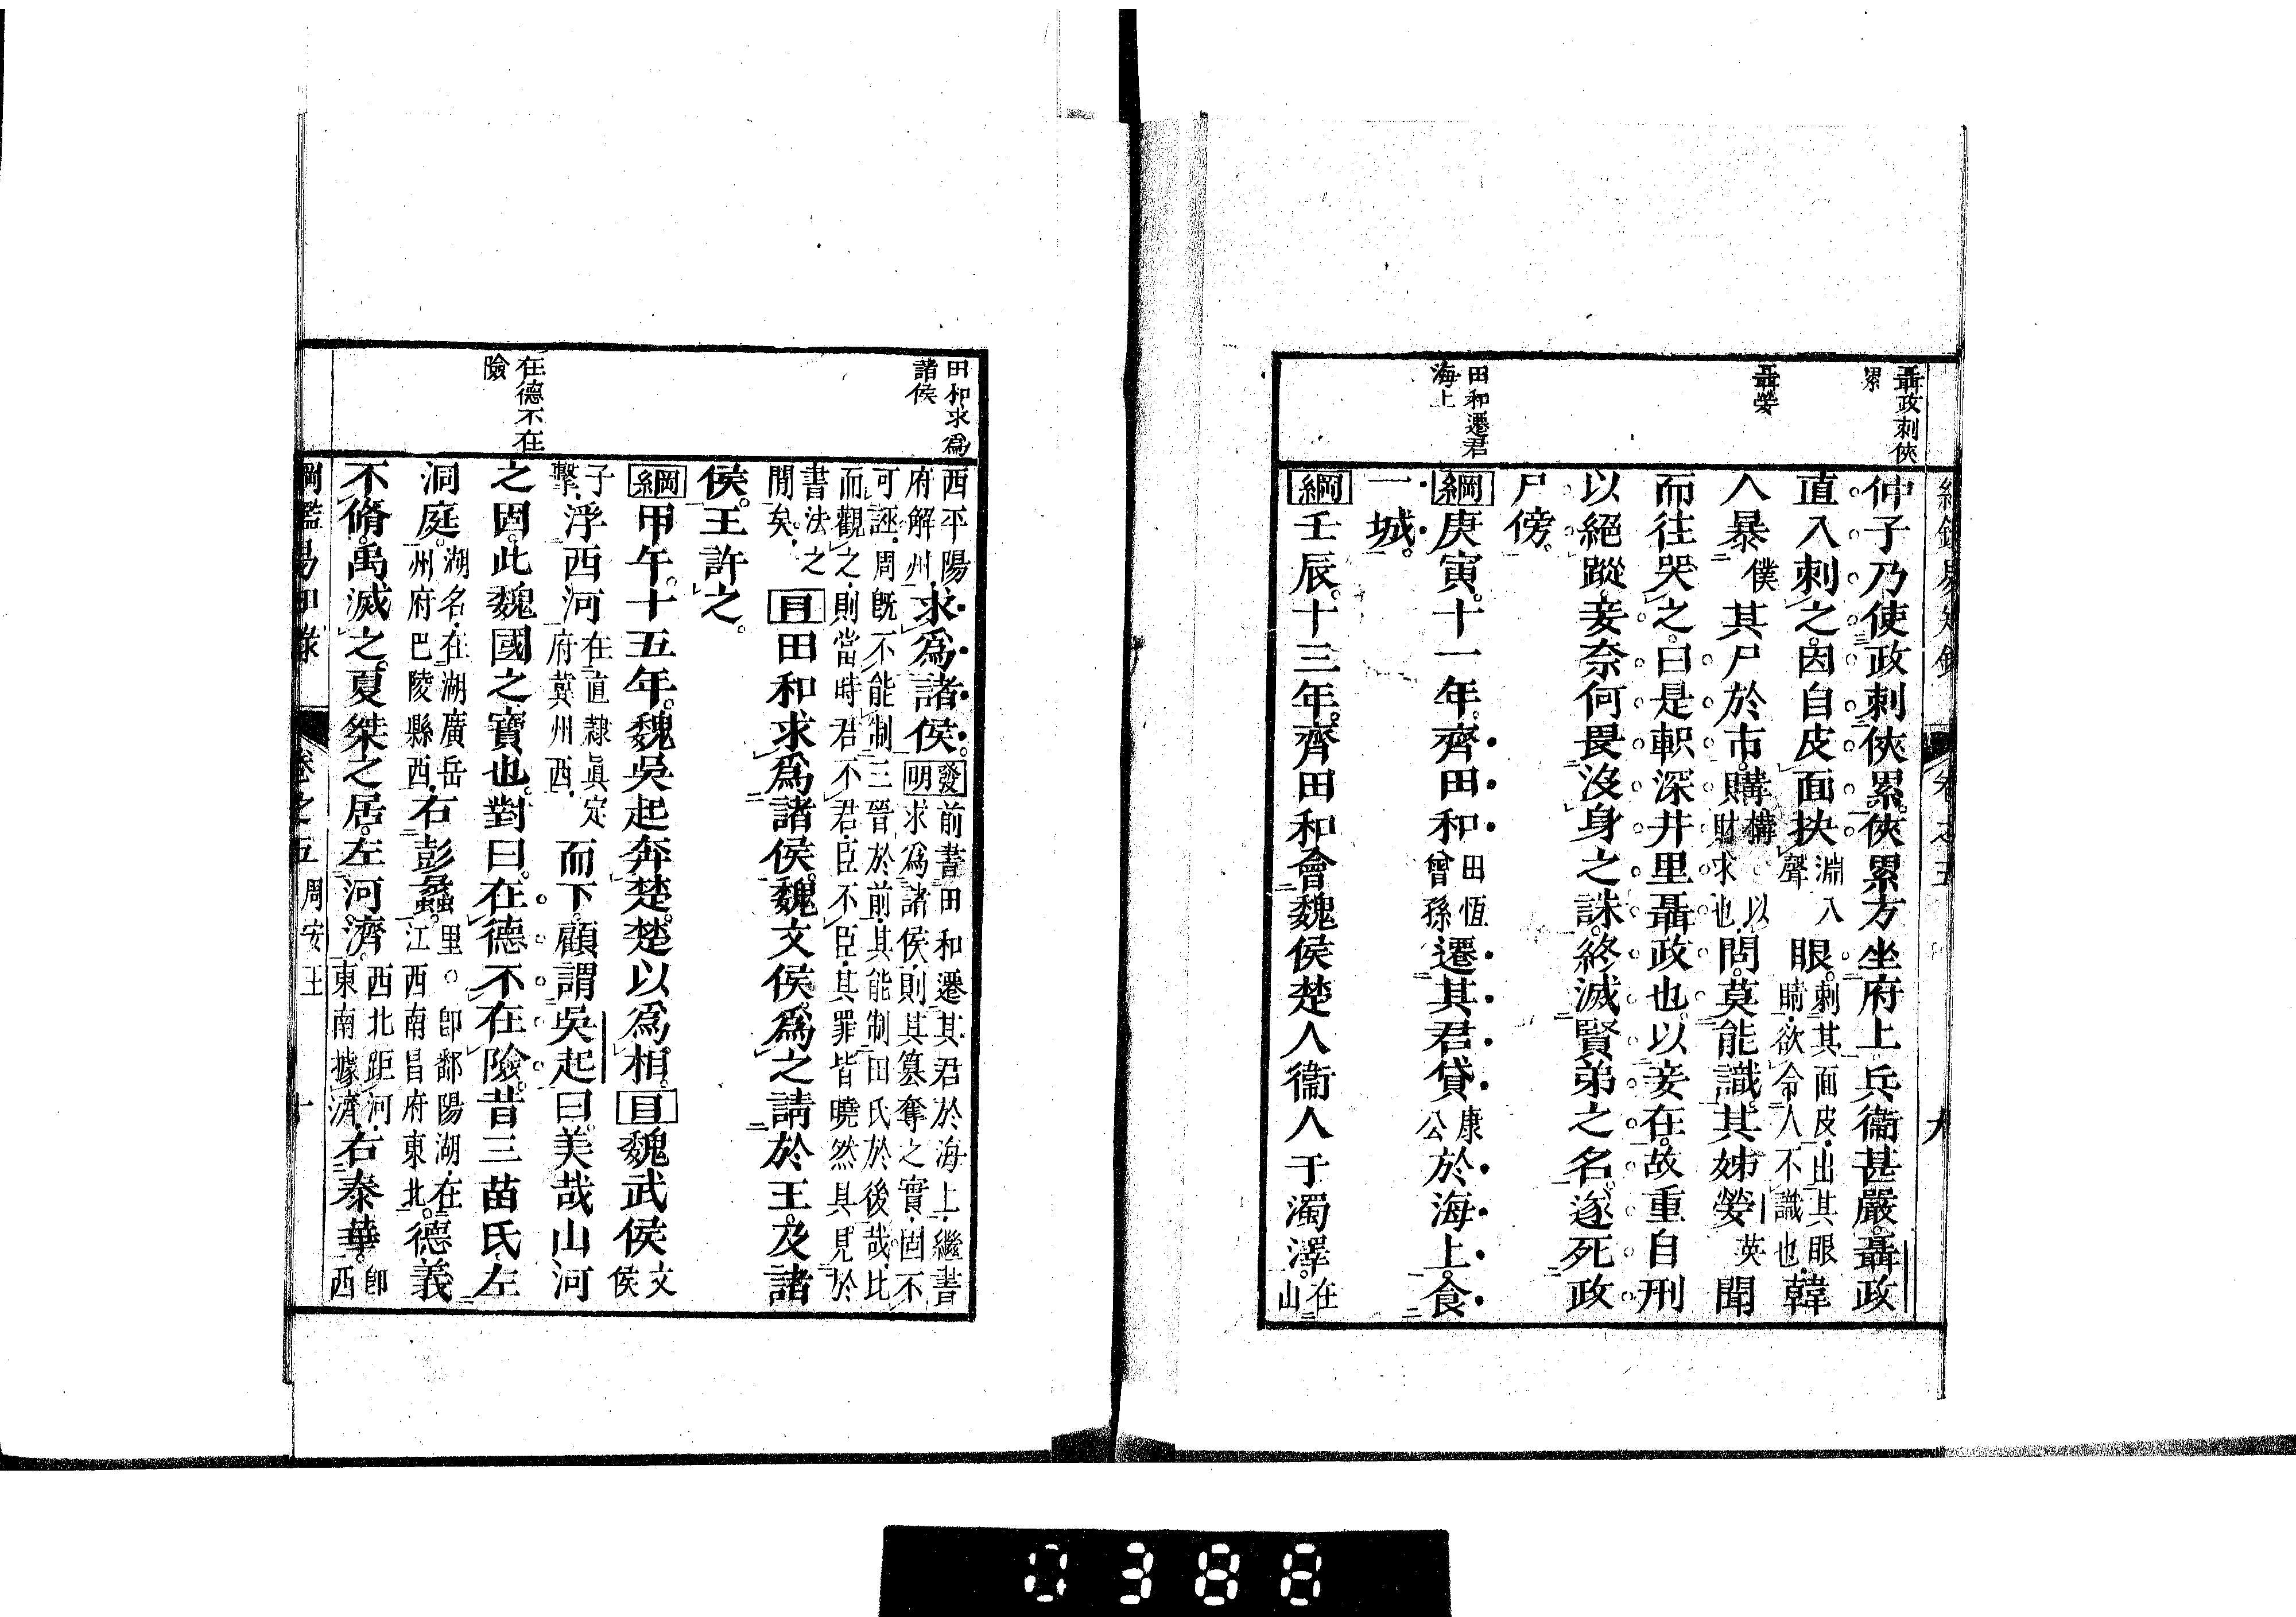 綱鑑易知錄 卷之五 九
聶政刺俠
累
聶嫈
田和遷君
海上
仲子乃使政刺俠累俠累方坐府上兵衞甚嚴聶政
直入刺之因自皮面抉淵入聲眼刺其面皮出其眼睛欲令人不識也韓
人暴僕其尸於市購構以財求也問莫能識其姊嫈英聞
而往哭之曰是軹深井里聶政也以妾在故重自刑
以絕蹤妾奈何畏沒身之誅終滅賢弟之名遂死政
尸傍
綱庚寅十一年齊田和田恆曾孫遷其君貸康公於海上食
一城
綱壬辰十三年齊田和會魏侯楚人衞人于濁澤在山
田和求爲
諸侯
在德不在
險
西平陽府解州求爲諸侯發明前書田和遷其君於海上繼書
求爲諸侯則其篡奪之實固不
可誣周旣不能制三晉於前其能制田氏於後哉比
而觀之則當時君不君臣不臣其罪皆曉然具見於
書法之間矣目田和求爲諸侯魏文侯爲之請於王及諸
侯王許之
綱甲午十五年魏吳起奔楚楚以爲相目魏武侯文侯
子擊浮西河在直隸眞定府冀州西而下顧謂吳起曰美哉山河
之固此魏國之寶也對曰在德不在險昔三苗氏左
洞庭湖名在湖廣岳州府巴陵縣西右彭蠡里○卽鄱陽湖在江西南昌府東北德義
不脩禹滅之夏桀之居左河濟西北距河東南據濟右泰華卽西
綱鑑易知錄 卷之五 周安王 十
0388